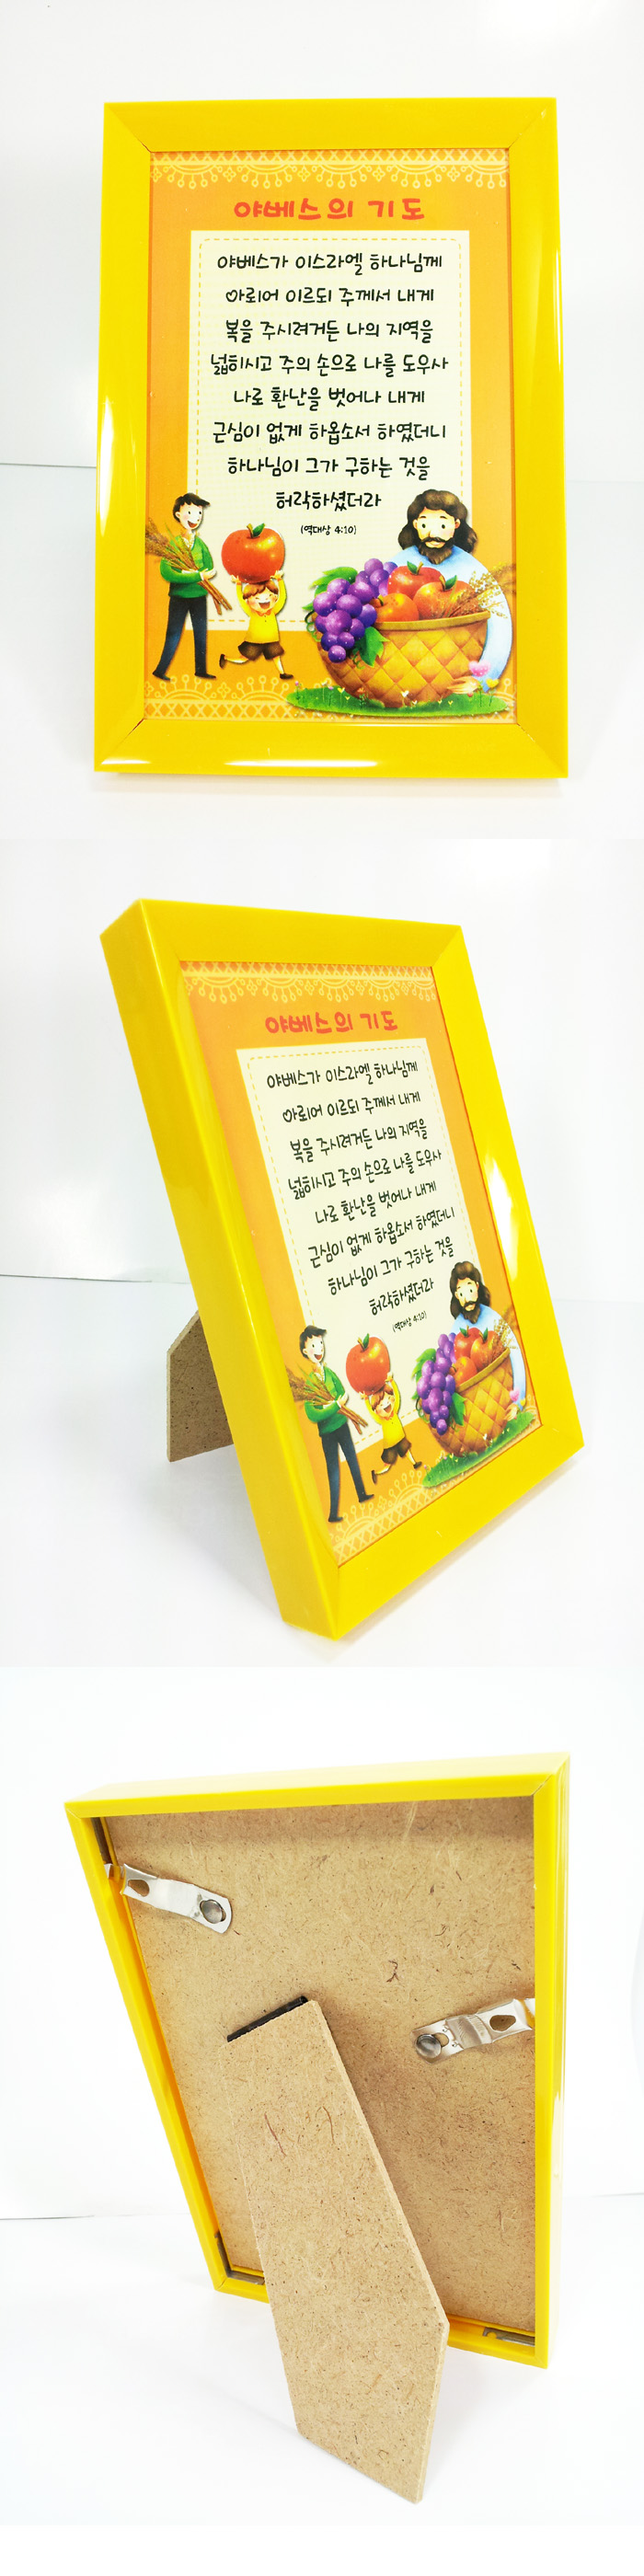 야베스의 기도
야베스가 이스라엘 하나님께
아뢰어 이르되 주께서 내게
복을 주시려거든 나의 지역을
넓히시고 주의 손으로 나를 도우사
나로 환난을 벗어나 내게
근심이 없게 하옵소서 하였더니
하나님이 그가 구하는 것을
허락하셨더라
(역대상 4:10)
야베스의 기도
야베스가 이스라엘 하나님께
아뢰어 이르되 주께서 내게
복을 주시려거든 나의 지역을
넓히시고 주의 손으로 나를 도우사
나로 환난을 벗어나 내게
근심이 없게 하옵소서 하였더니
하나님이 그가 구하는 것을
허락하셨더라
(역대상 4:10)